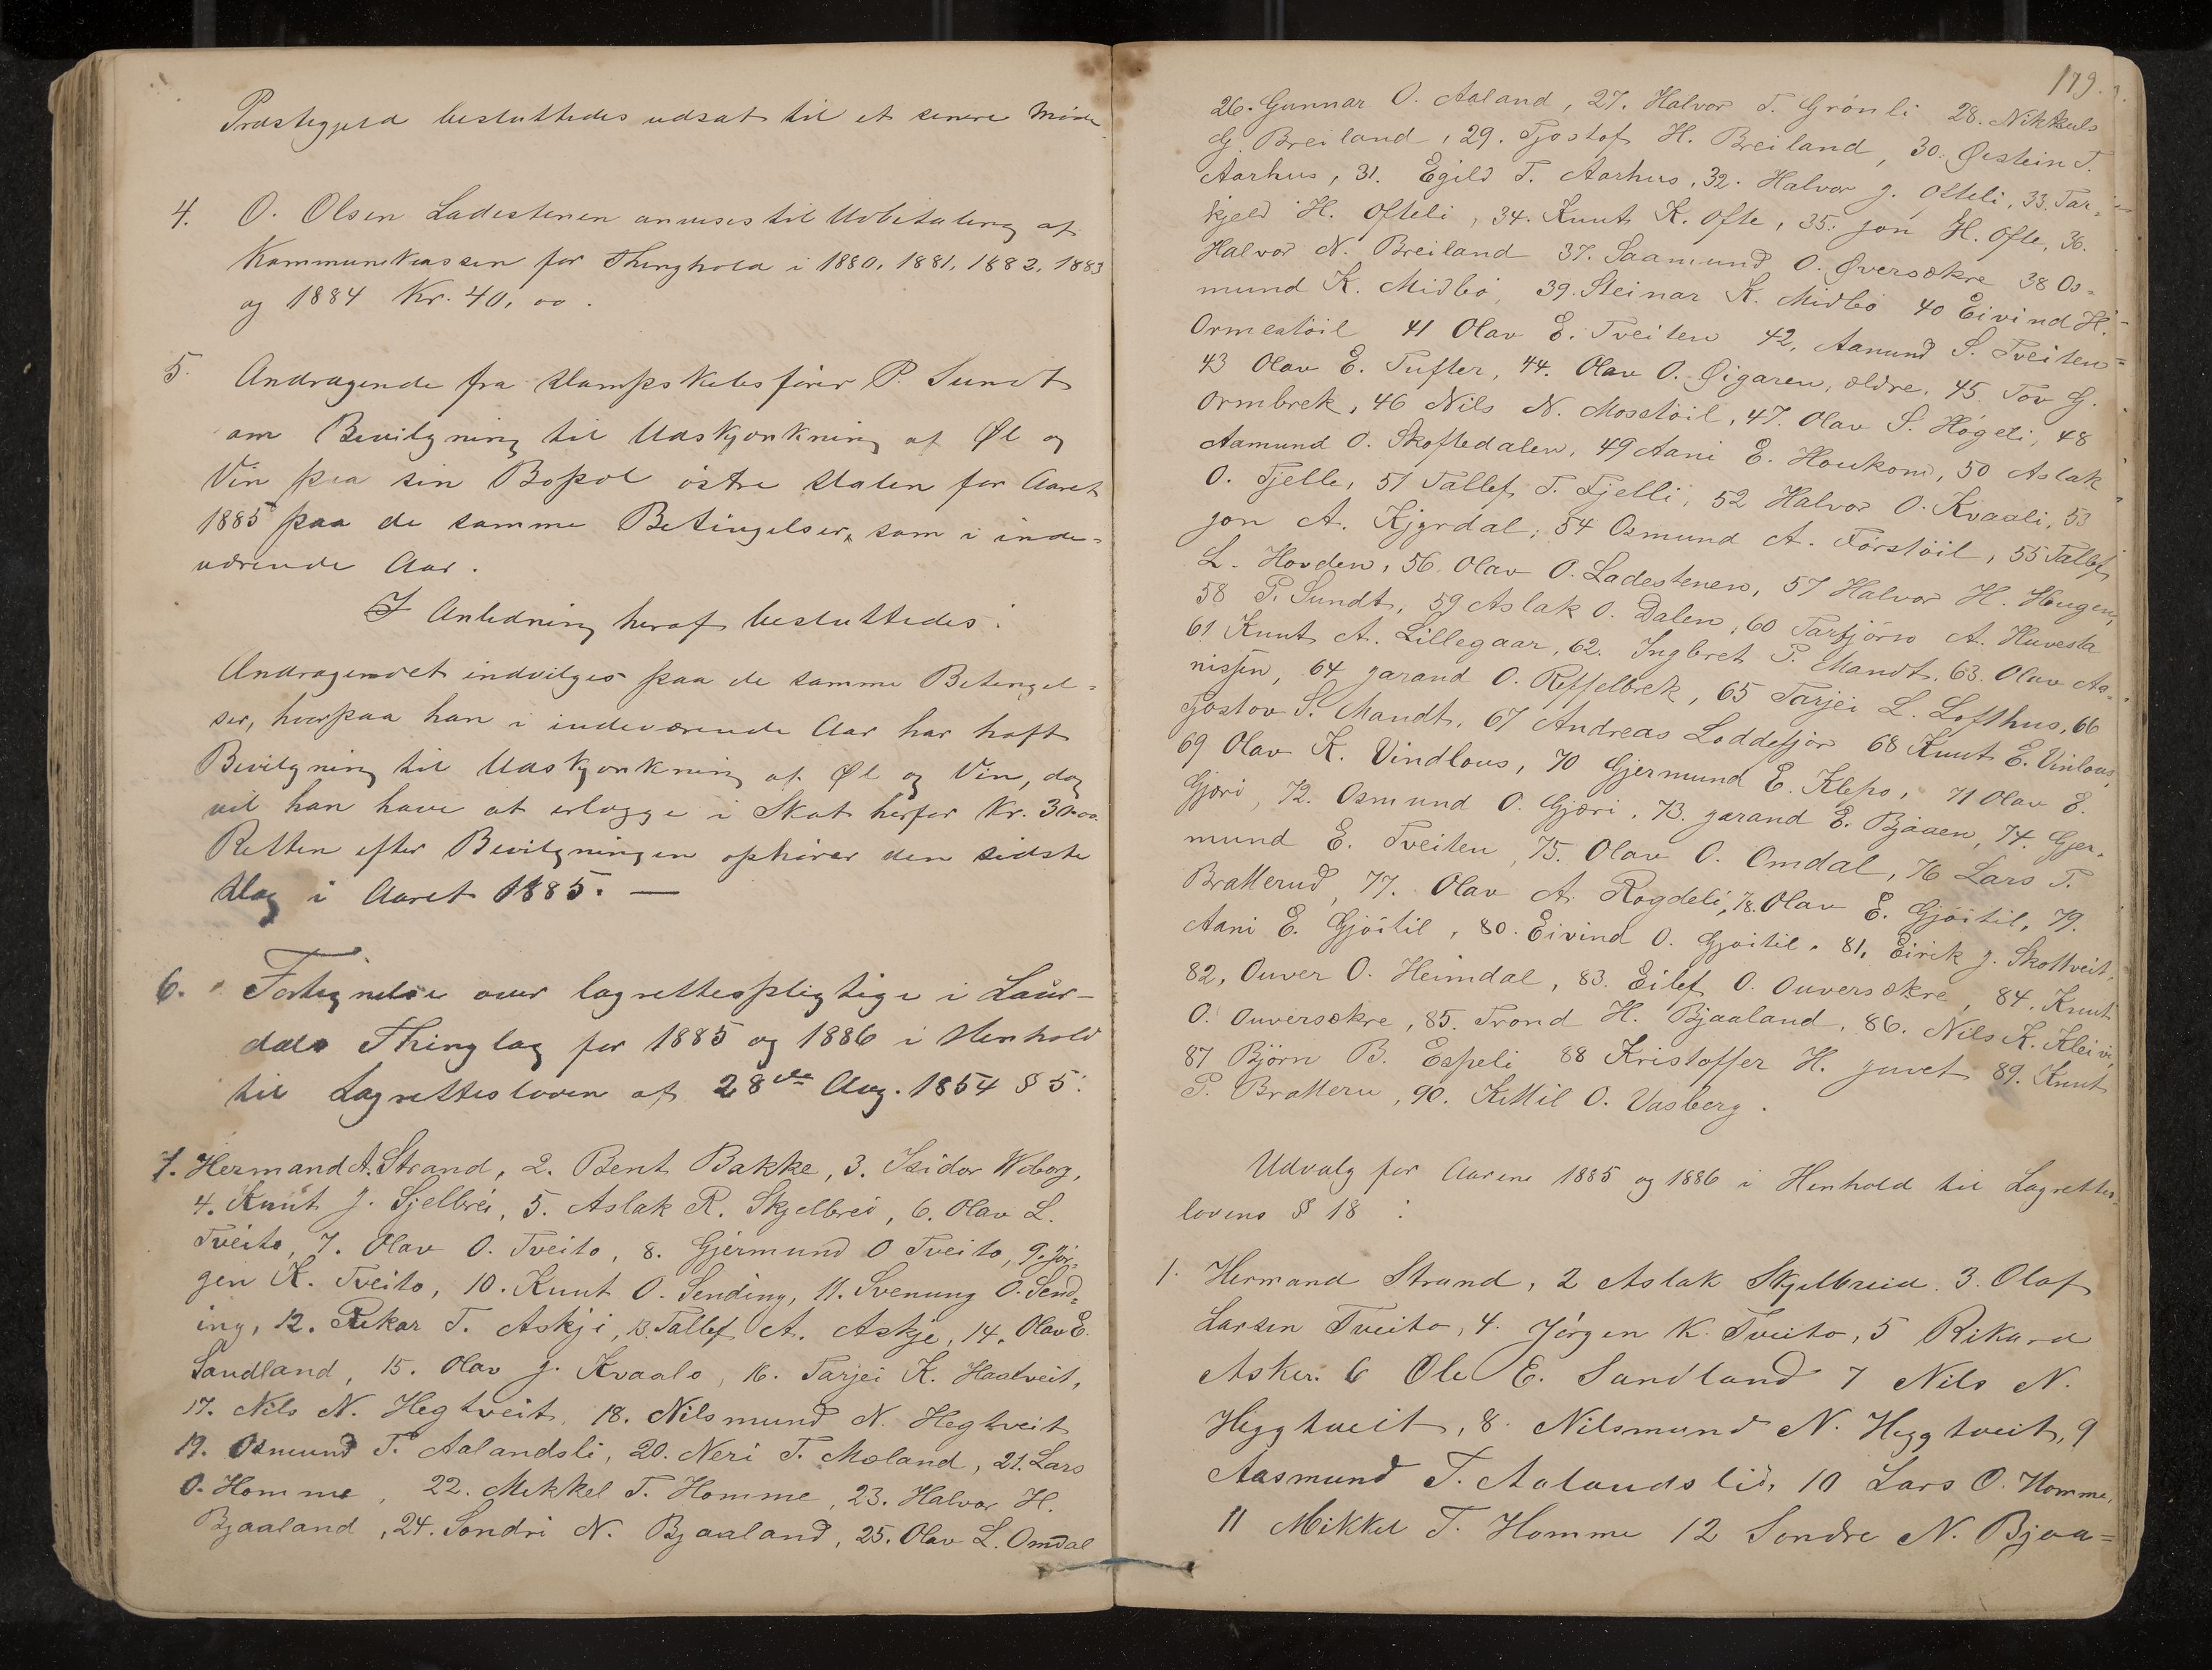 Præstegjeld besluttedes udsat til et senere Møde.
4. O. Olsen Ladestenen anvises til Udbetaling af
Kommunekassen for Thinghold i 1880, 1881, 1882, 1883
og 1884 Kr. 40,00.
5. Andragende fra Dampskibsfører P. Sundt
om Bevilgning til Udskjænkning af Øl og
Vin paa sin Bopæl østre Dalen for Aaret
1885 paa de samme Betingelser, som i inde-
værende Aar.
I Anledning heraf besluttedes:
Andragendet indvilges paa de samme Betingel-
ser, hvorpaa han i indeværende Aar har haft
Bevilgning til Udskjænkning af Øl og Vin, dog
vil han have at erlægge i Skat herfor Kr.
Retten efter Bevilgningen ophører den sidste
Dag i Aaret 1885. —
6. Fortegnelse over lagrettespligtige i Laur-
dals Thinglag for 1885 og 1886 i Henhold
til Lagrettesloven af 28de Aug. 1854 § 5:
1. Hermand A. Strand, 2. Bent Bakke, 3. Isidor Wiborg,
4. Knut J. Sjelbrei, 5. Aslak R. Skjelbrei, 6. Olav L.
Tveito, 7. Olav O. Tveito, 8. Gjermund O Tveito, 9. Jør-
gen K. Tveito, 10. Knut O. Sending, 11. Svenung O. Send-
ing, 12. Rikar T. Askji, 13. Tallef A. Askje, 14. Olav E.
Sandland, 15. Olav J. Kvaalo, 16. Tarjei K. Haatveit,
17. Nils N. Hegtveit, 18. Nilsmund N. Hegtveit
19. Osmund T. Aalandsli, 20. Neri T. Moland, 21. Lars
O. Homme, 22. Mikkel T. Homme, 23. Halvor H.
Bjaaland, 24. Sondri N. Bjaaland, 25. Olav L. Omdal
179.
26. Gunnar O. Aaland, 27. Halvor T. Grönli 28. Nikkuls
G. Breiland, 29. Tjostof H. Breiland, 30. Øistein T.
Aarhus, 31. Egild T. Aarhus, 32. Halvor J. Ofteli, 33. Tar-
kjeld H. Ofteli, 34. Knut K. Ofte, 35. Jon H. Ofte, 36.
Halvor N. Breiland 37. Saamund O. Øversækre 38 Os-
mund K. Midbö, 39. Steinar K. Midbö 40 Eivind H.
Ormestöil 41 Olav E. Tveiten 42, Aanund S. Tveiten
43 Olav E. Tufter, 44. Olav O. Øigaren, ældre, 45. Tov G.
Ormbrek, 46 Nils N. Mosstöil, 47. Olav S. Högeli, 48
Aamund O. Skoftedalen, 49 Aani E. Houkom, 50 Aslak
O. Tjelle, 51 Tallef T. Tjelli, 52 Halvor O. Kvaali, 53
Jon A. Kjyrdal, 54 Osmund A. Förstöil, 55 Tallef
L. Hovden, 56 Olav O. Ladestenen, 57 Halvor H. Hougen,
58 P. Sundt, 59 Aslak O. Dalen, 60 Tarfjörn A. Huvesta
61 Knut A. Lillegaar, 62. Ingbret P. Mandt, 63. Olav Aa-
nissen, 64 Jarand O. Reffelbrek, 65 Tarjei L. Lofthus, 66
Tjostov S. Mandt, 67 Andreas Loddefjör 68 Knut E. Vinlous,
69 Olav K. Vindlous, 70 Gjermund E. Klepo, 71 Olav E.
Gjøri, 72. Osmund O. Gjøri, 73. Jarand E. Bjåaen, 74. Gjer-
mund E. Tveiten, 75. Olav O. Omdal, 76 Lars T.
Bratterud, 77. Olav A. Rogdeli, 78. Olav E. Gjöitil, 79.
Aani E. Gjöitil, 80. Eivind O. Gjöitil, 81, Eirik J. Skottveit,
82, Ouver O. Heimdal, 83. Eilef O. Ouversækre, 84. Knut
O. Ouversækre, 85. Trond H. Bjaaland, 86. Nils K. Kleivi,
87 Björn B. Espeli 88 Kristoffer H. Juvet 89. Knut
P. Bratteru, 90. Kittil O. Vasberg.
Udvalg for Aarene 1885 og 1886 i Henhold til Lagrettes-
lovens § 18:
1. Hermand Strand, 2 Aslak Skjelbreid 3. Olaf
Larsen Tveito, 4. Jörgen K. Tveito, 5 Rikard
Asker. 6 Ole E. Sandland 7 Nils N.
Heggtveit, 8. Nilsmund N. Heggtveit, 9
Aasmund T. Aalandslid, 10 Lars O. Homme,
11 Mikkel T. Homme 12 Sondre N. Bjaa-